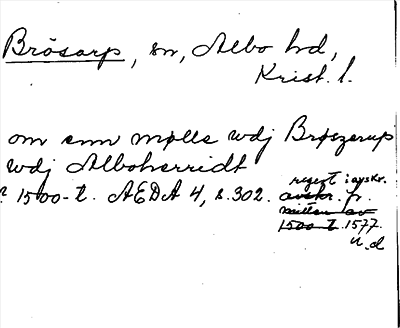 Brösarp, sn, Albo hd,
Krist. l.
om enn mølle wdj Brøszerup
wdj Alboherridt
1500-t. AEDA 4, s. 302.
regest i avskr.
avskr. fr.
mitten av
1500-t. 1577.
u.d